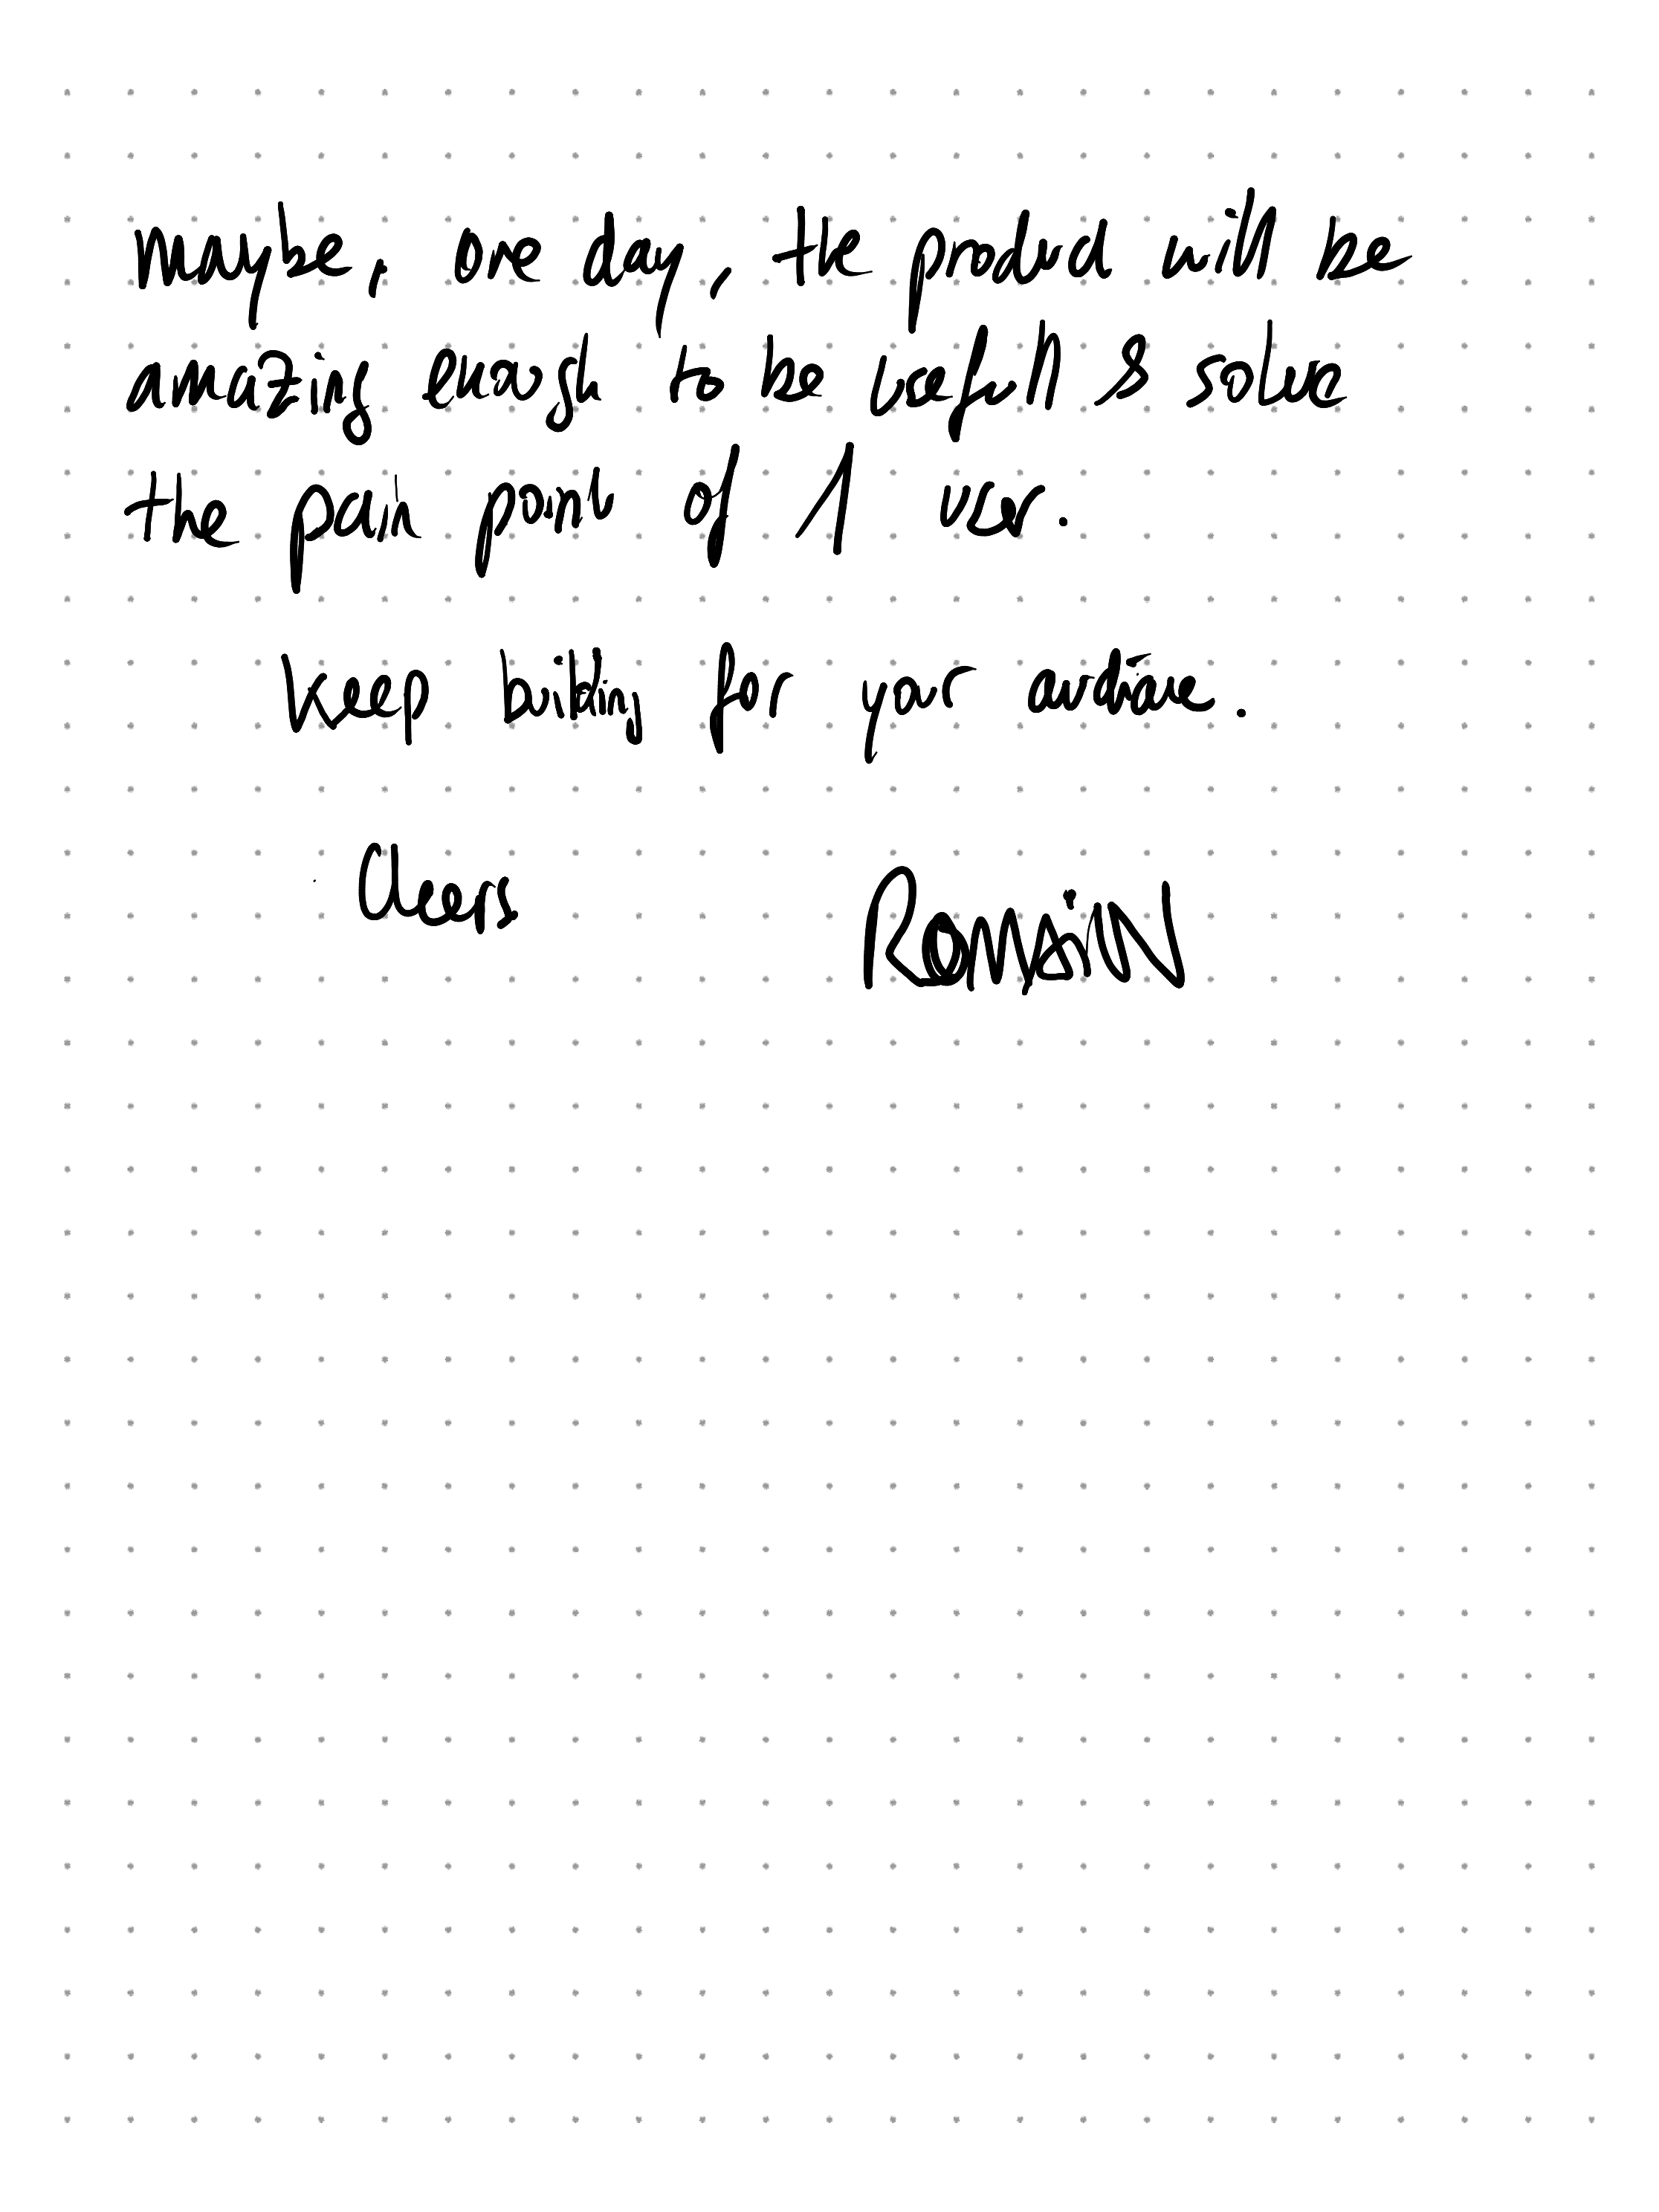 maybe, one day, the product will be
amazing enough to be usefull & solve
the pain point of 1 user.
Keep building for your audience.
Cheers
Romain